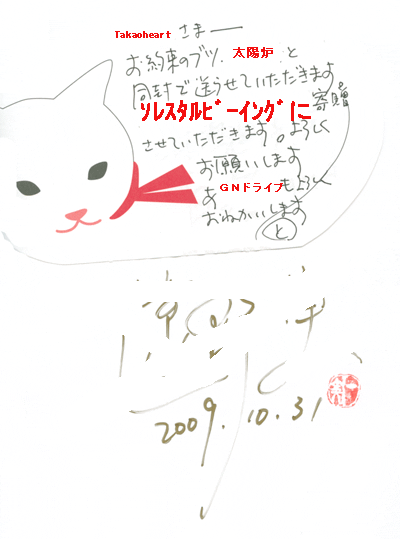 Takaoheart さま
お約束のブツ、太陽炉 と
同封で送らせていただきます。
ソレスタルビーイングに寄贈
させていただきます。よろしく
お願いします
GNドライブもよろしく
おねがいします
と
2009.10.31